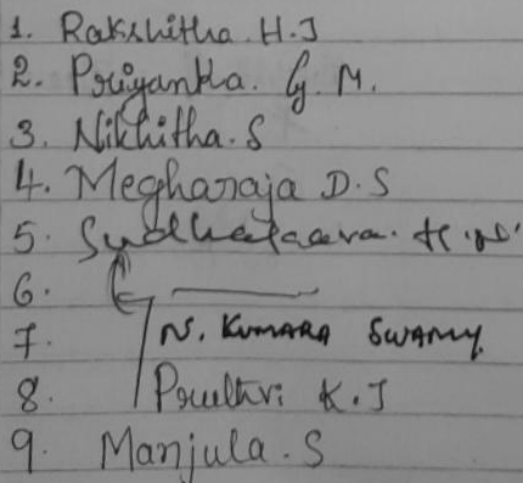 1. Rakshitha. H.J
2. Priyanka. G. M.
3. Nikhitha. S
4. Megharaja D. S
5. H.N.
6.
7. N. KUMARA SWAMY.
8. Pruthvi K. J
9. Manjula. S